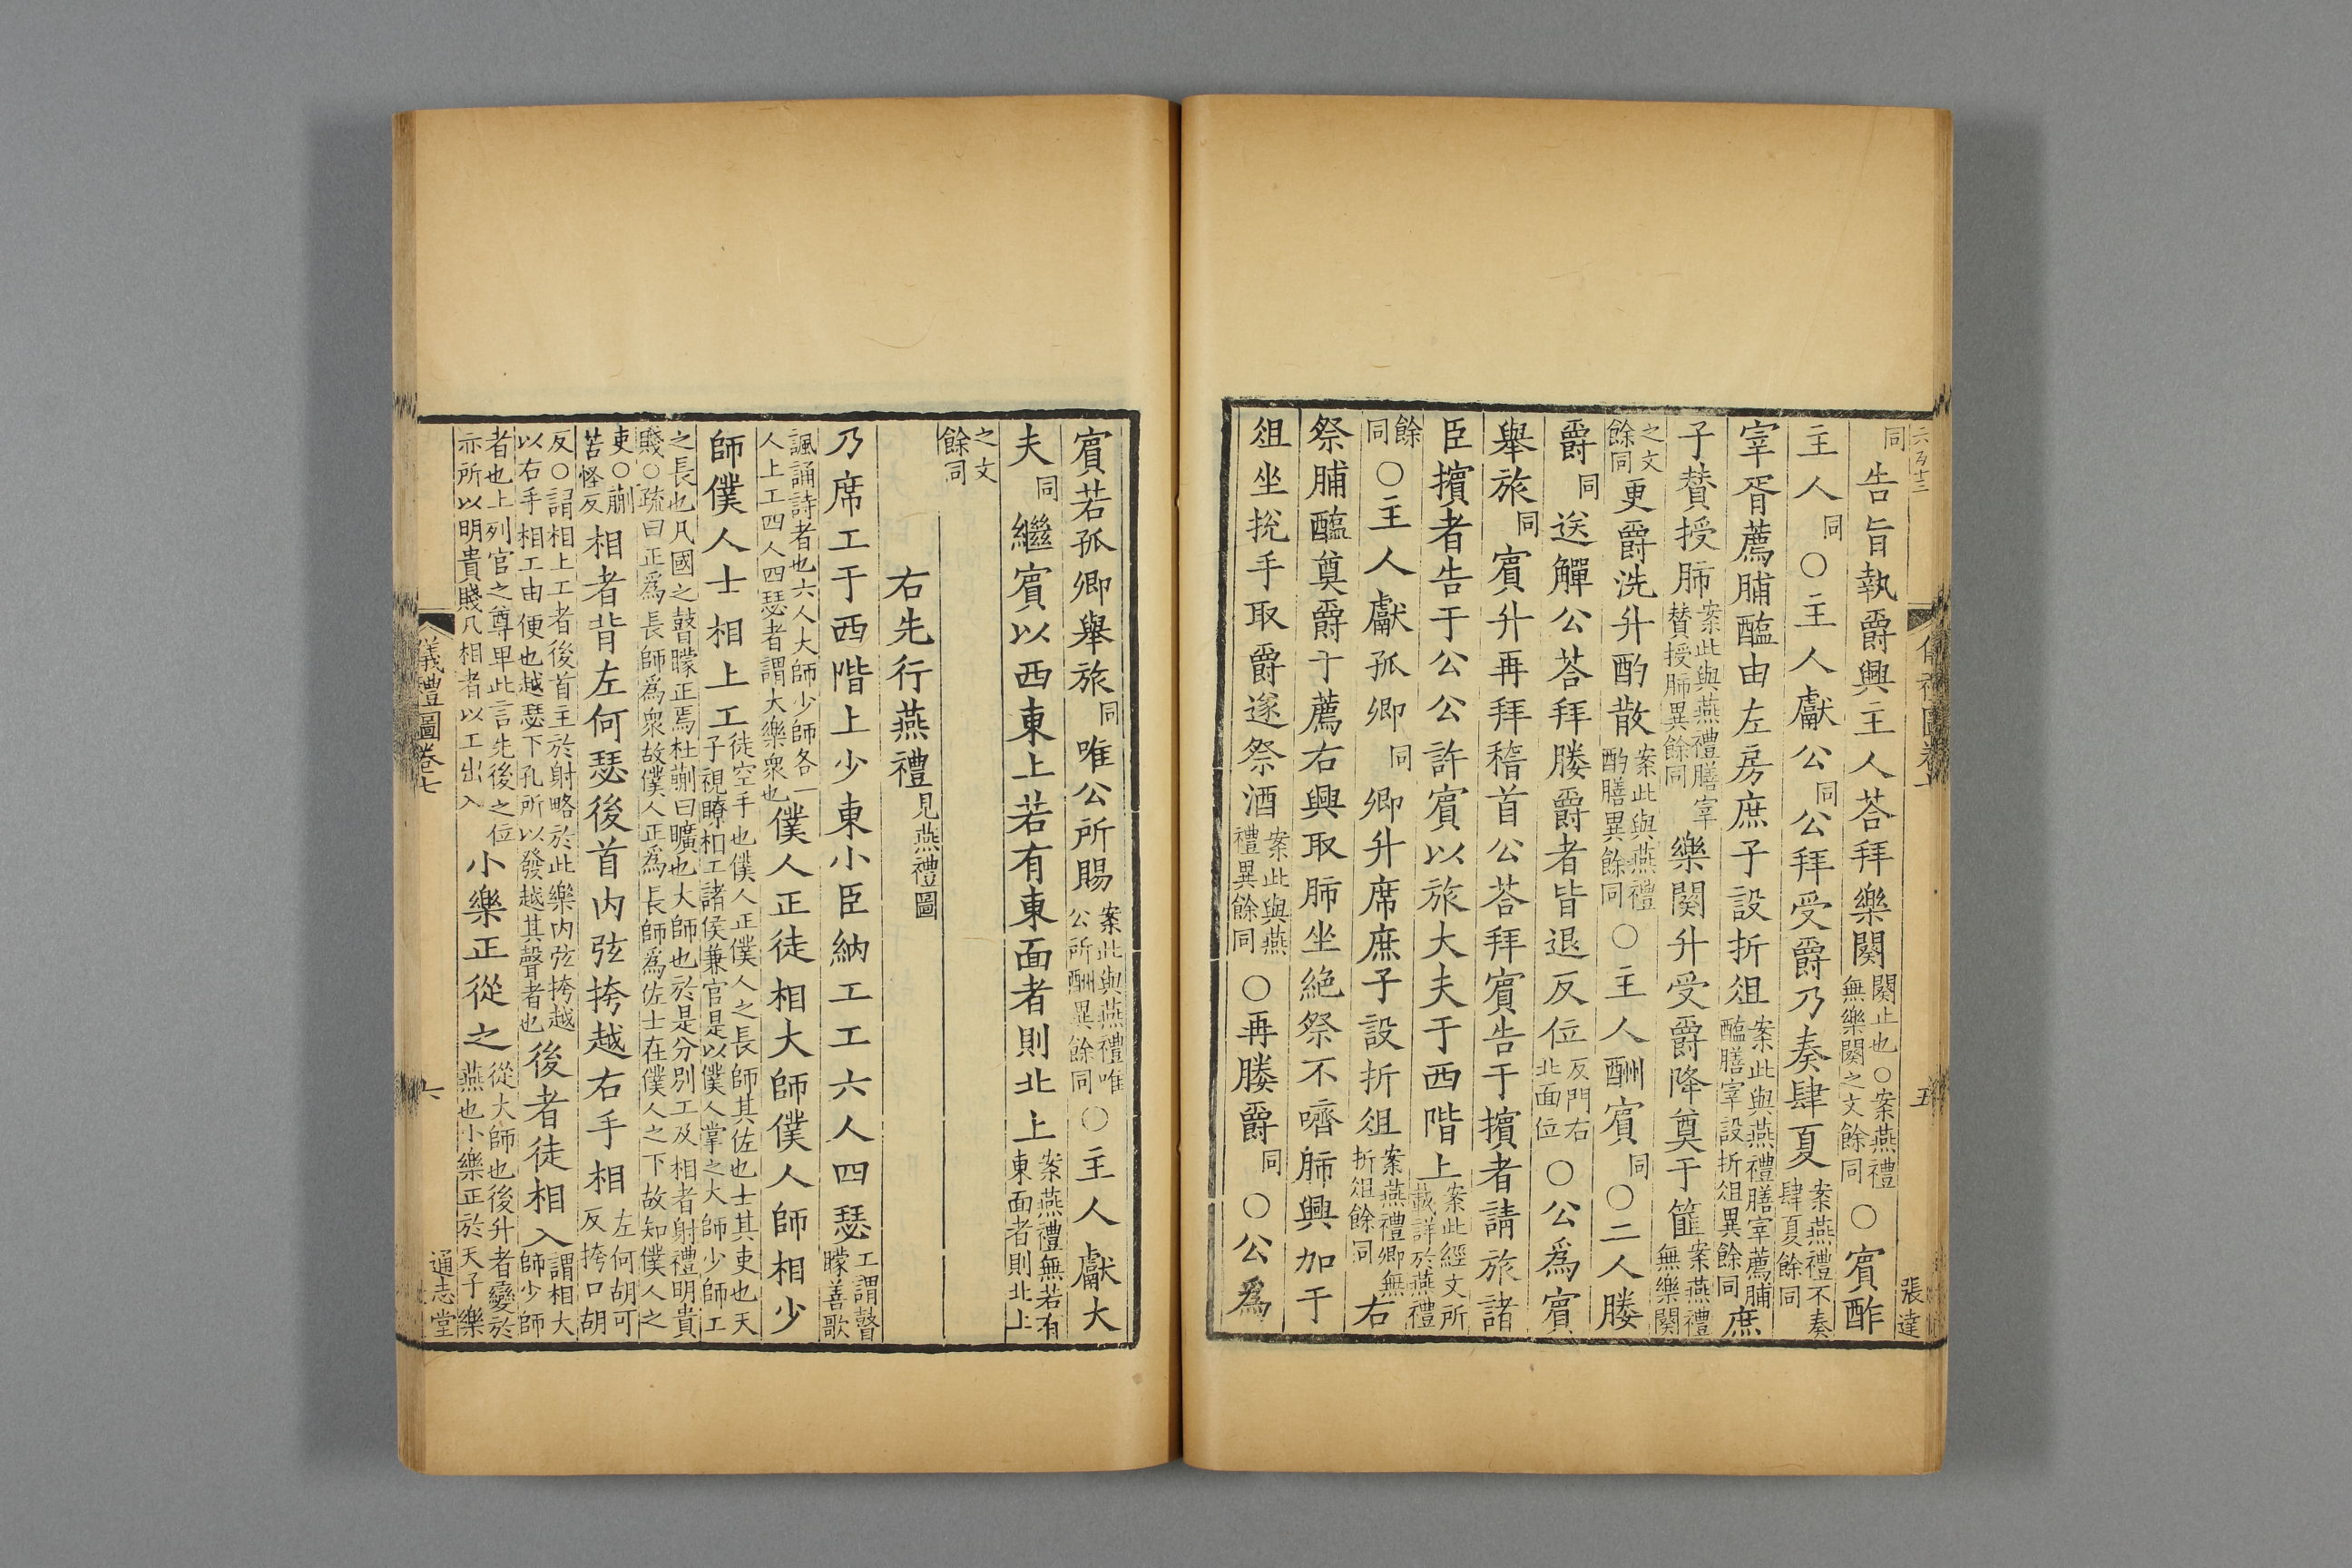 六百十三
儀禮圖卷七
五
張達
同告旨執爵興主人荅拜樂闋闋止也○案燕禮無樂闋之文餘同○賓酢
主人同○主人獻公同公拜受爵乃奏肆夏案燕禮不奏肆夏餘同
宰胥薦脯醢由左房庶子設折俎案此與燕禮膳宰薦脯醢膳宰設折俎異餘同庶
子賛授肺案此與燕禮膳宰賛授肺異餘同樂闋升受爵降奠于篚案燕禮無樂闋
之文餘同更爵洗升酌散案此與燕禮酌膳異餘同○主人酬賓同○二人媵
爵同送觶公荅拜媵爵者皆退反位反門右北面位○公爲賓
舉旅同賓升再拜稽首公荅拜賓告于擯者請旅諸
臣擯者告于公公許賓以旅大夫于西階上案此經文所載詳於燕禮
餘同○主人獻孤卿同卿升席庶子設折俎案燕禮卿無折俎餘同右
祭脯醢奠爵于薦右興取肺坐絶祭不嚌肺興加于
俎坐挩手取爵遂祭酒案此與燕禮異餘同○再媵爵同○公爲
賓若孤卿舉旅同唯公所賜案此與燕禮唯公所酬異餘同○主人獻大
夫同繼賓以西東上若有東面者則北上案燕禮無若有東面者則北上
之文餘同
右先行燕禮見燕禮圖
乃席工于西階上少東小臣納工工六人四瑟工謂瞽矇善歌
諷誦詩者也六人大師少師各一人上工四人四瑟者謂大樂衆也僕人正徒相大師僕人師相少
師僕人士相上工徒空手也僕人正僕人之長師其佐也士其吏也天子視瞭相工諸侯兼官是以僕人掌之大師少師工
之長也凡國之瞽矇正焉杜蒯曰曠也大師也於是分別工及相者射禮明貴賤○疏曰正爲長師爲衆故僕人正爲長師爲佐士在僕人之下故知僕人之
吏○蒯苦怪反相者皆左何瑟後首内弦挎越右手相左何胡可反挎口胡
反○謂相上工者後首主於射略於此樂内弦挎越以右手相工由便也越瑟下孔所以發越其聲者也後者徒相入謂相大師少師
者也上列官之尊卑此言先後之位亦所以明貴賤凡相者以工出入小樂正從之從大師也後升者變於燕也小樂正於天子樂
儀禮圖卷七
六
通志堂